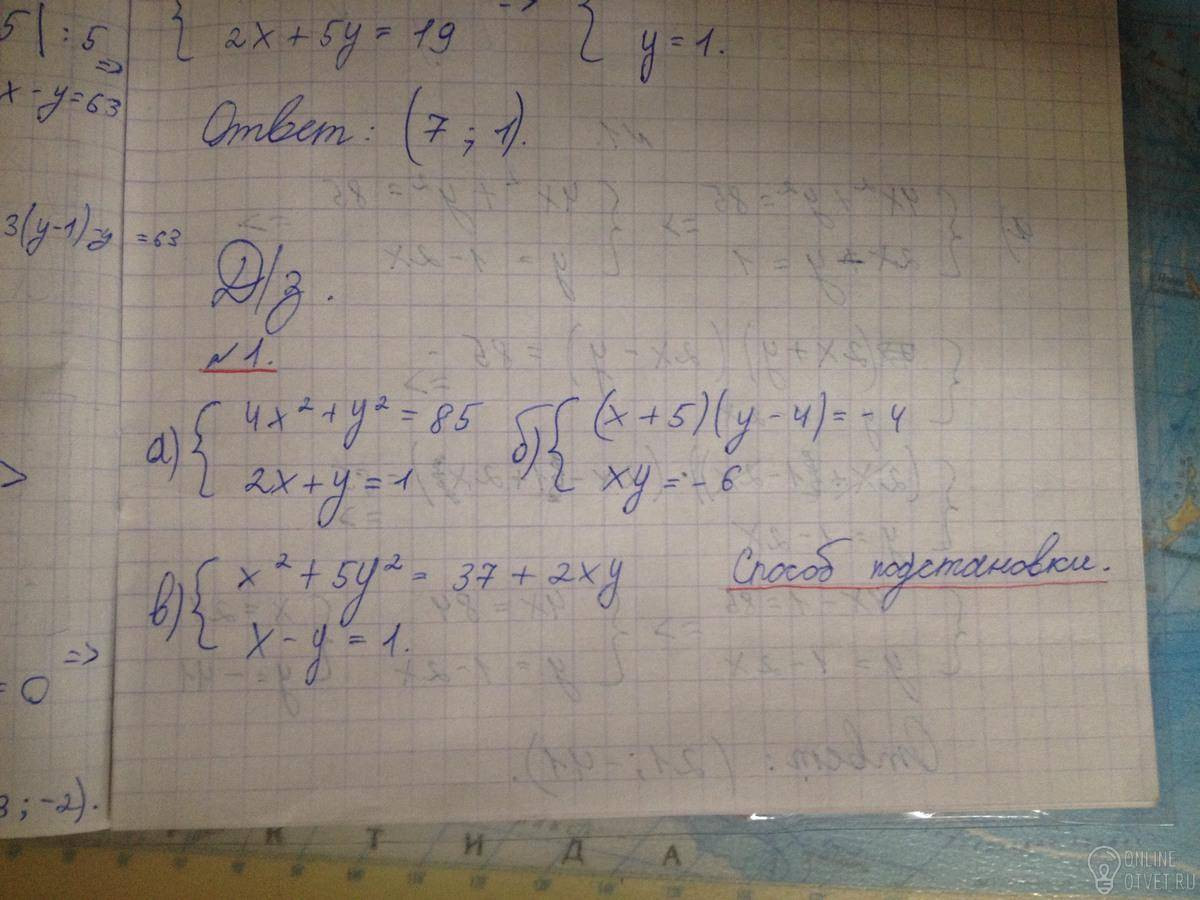 5 | : 5
=>
x - y = 63
3(y-1)-y = 63
=>
= 0
3 ; -2).
{ 2x + 5y = 19 => { y = 1.
Ответ: (7 ; 1).
Д/з.
№1.
а) { 4x² + y² = 85
2x + y = 1
б) { (x + 5)(y - 4) = -4
xy = -6
в) { x² + 5y² = 37 + 2xy
x - y = 1.
Способ подстановки.
К Т И Д А
ONLINE
OTVET.RU